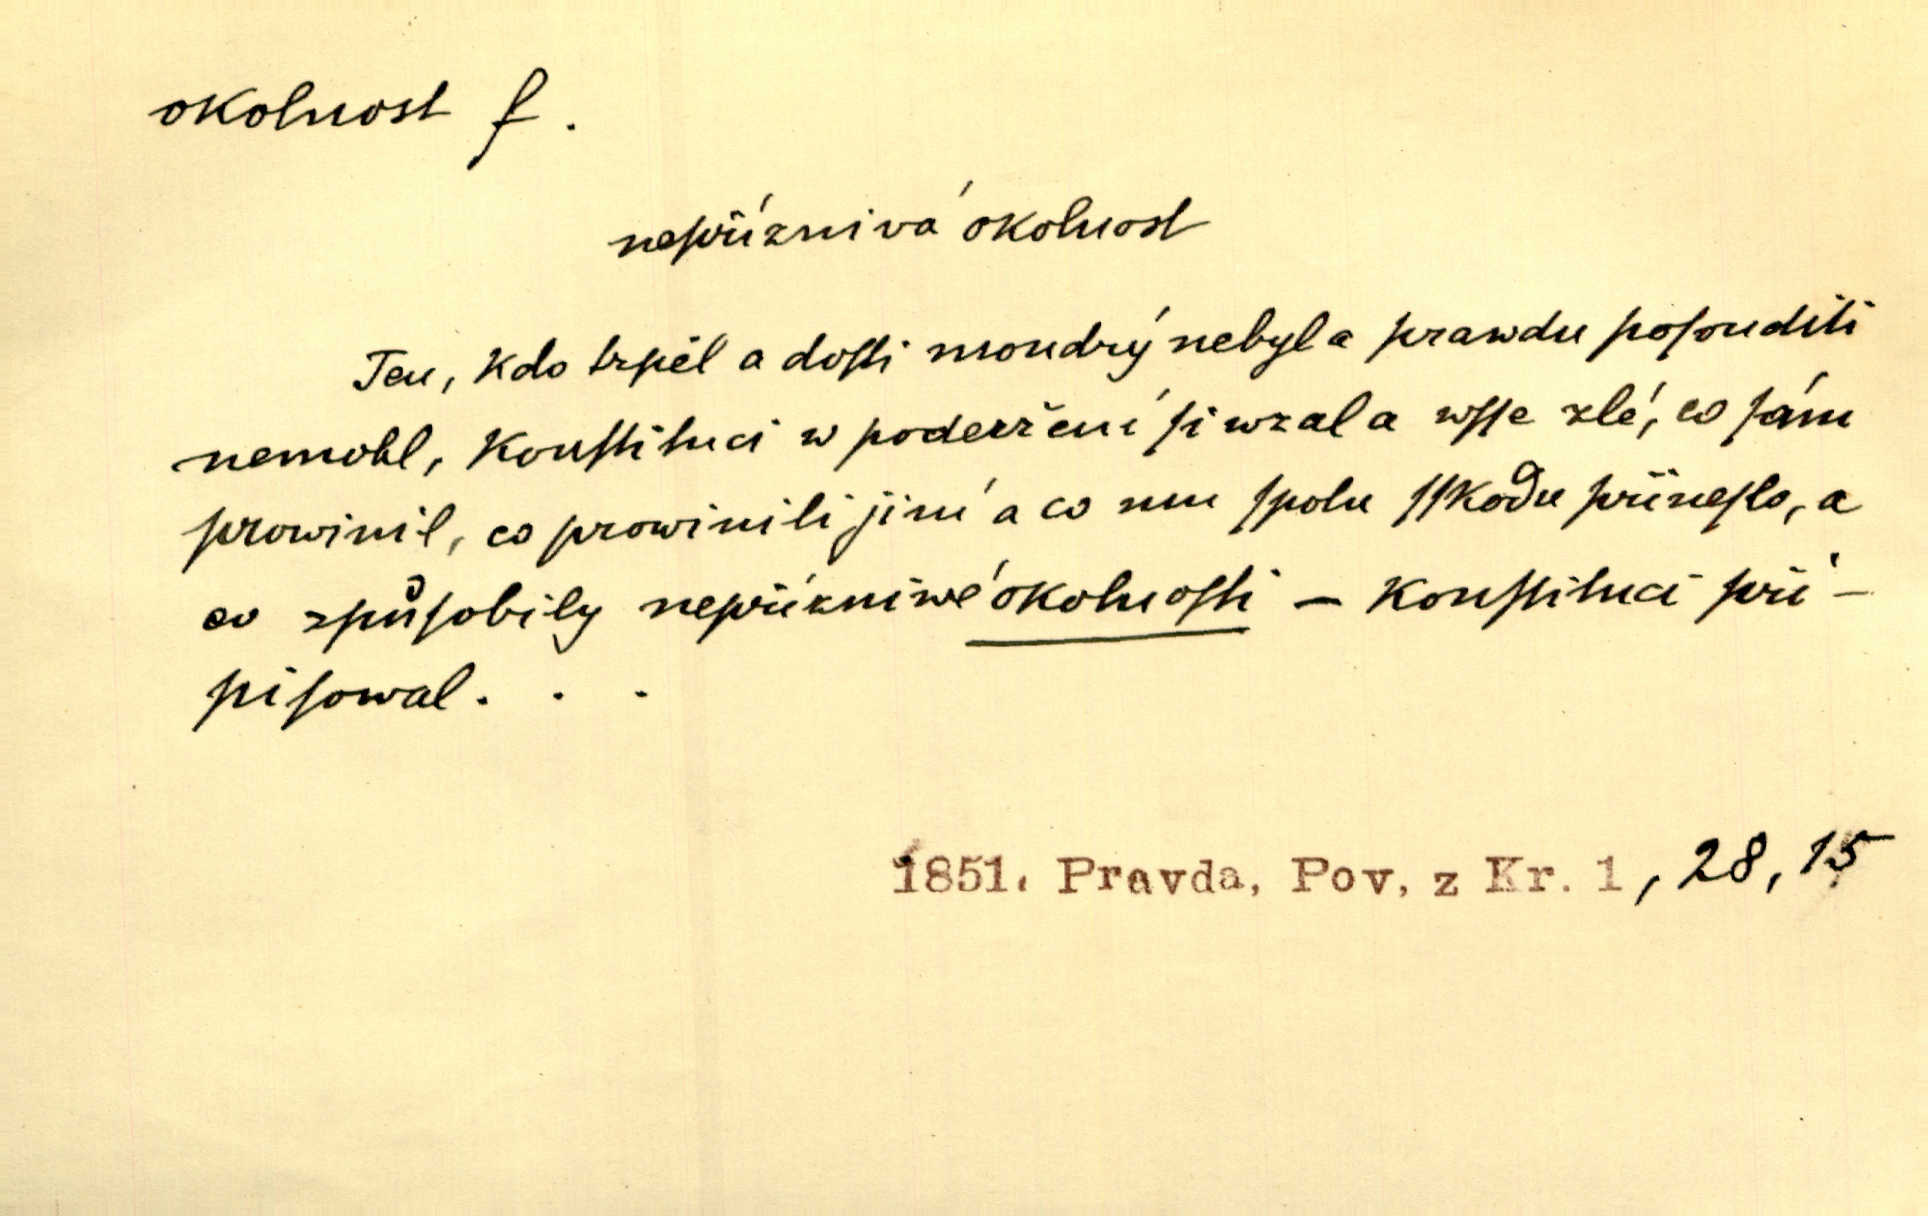 okolnost f.
nepříznivá okolnost
Ten, kdo trpěl a doſti moudrý nebyl a prawdu poſouditi
nemohl, Konſtituci w podezření ſi wzal a wſſe zlé, co ſám
prowinil, co prowinili jiní a co mu ſpolu ſſkodu přineſlo, a
co zpuſobily nepřízniwé okolnoſti – Konſtituci při-
piſowal. . .
1851. Pravda, Pov. z Kr. 1, 28, 15